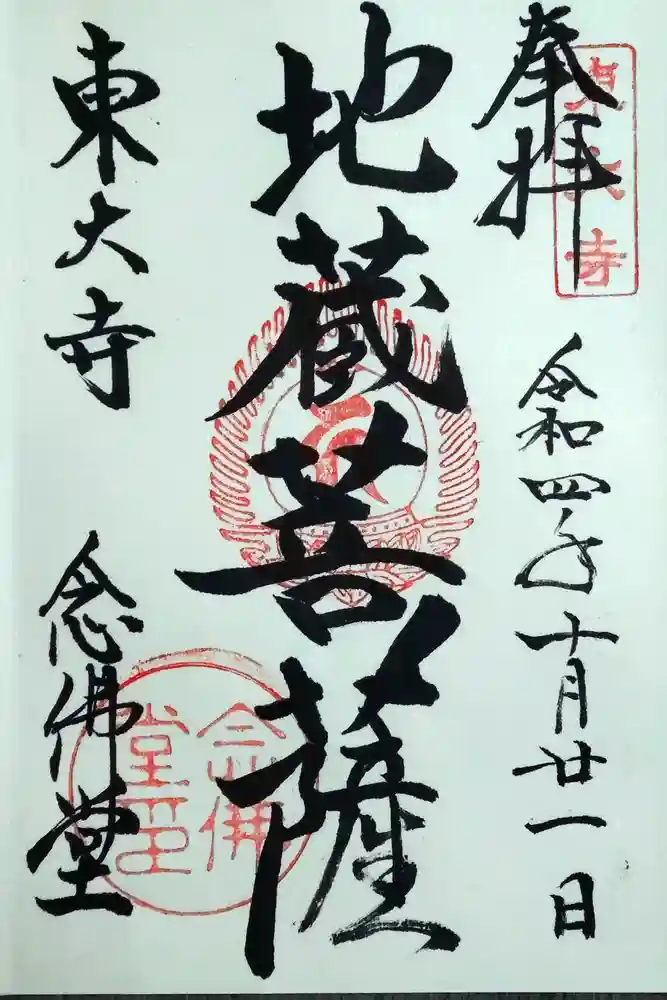 奉拝
東大寺
令和四年十月廿一日
地蔵菩薩
東大寺
念佛堂
念佛
堂印